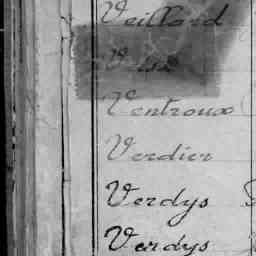 Veillard
Ventroux
Verdier
Verdys
Verdys